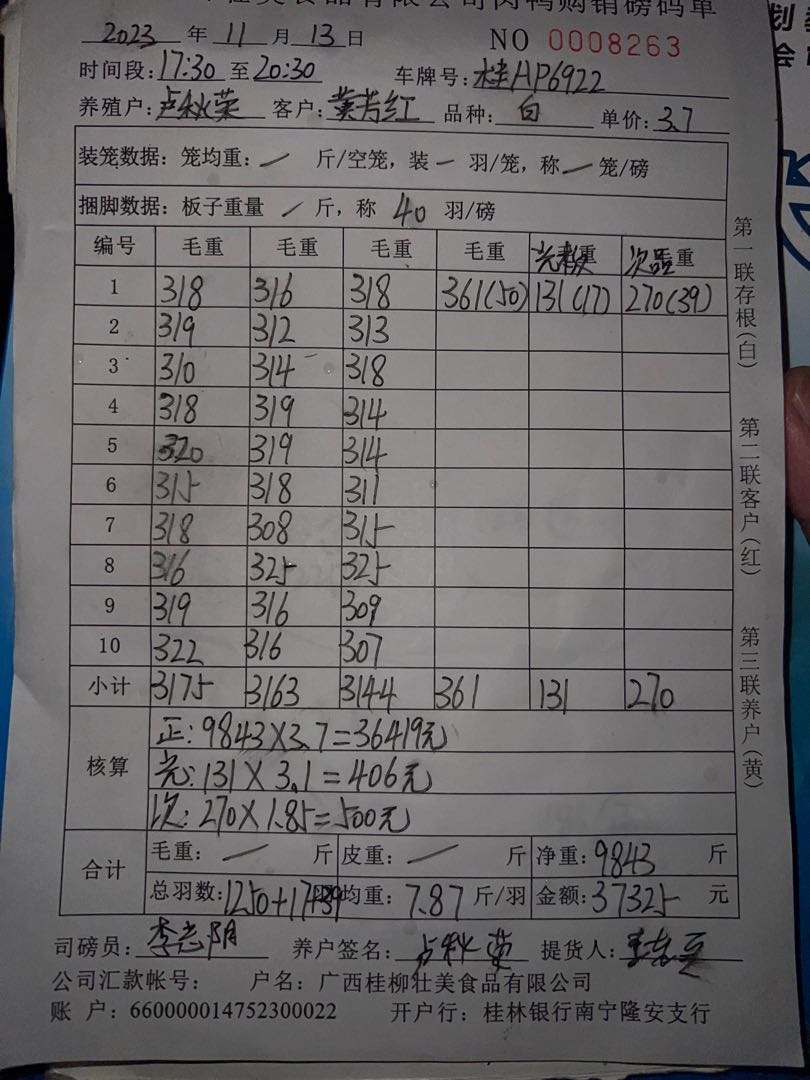 壮美食品有限公司肉鸭购销磅码单
2023 年 11 月 13 日 NO 0008263
时间段:17:30 至 20:30 车牌号: 桂AP6922
养殖户: 卢秋荣 客户: 黄芳红 品种: 白 单价: 3.7
装笼数据: 笼均重: / 斤/空笼, 装 一 羽/笼, 称 一 笼/磅
捆脚数据: 板子重量 / 斤, 称 40 羽/磅
编号 毛重 毛重 毛重 毛重 光 重 次品 重
1 318 316 318 361(50) 131(17) 270(39)
2 319 312 313
3 310 314 318
4 318 319 314
5 320 319 314
6 315 318 311
7 318 308 315
8 316 325 325
9 319 316 309
10 322 316 307
小计 3175 3163 3144 361 131 270
核算
正: 9843×3.7=36419元
光: 131×3.1=406元
次: 270×1.85=500元
合计
毛重: 一 斤 皮重: 一 斤 净重: 9843 斤
总羽数: 1250+17+39 均重: 7.87 斤/羽 金额: 37325 元
司磅员: 李志阴 养户签名: 卢秋荣 提货人:
公司汇款帐号: 户名: 广西桂柳壮美食品有限公司
账 户: 660000014752300022 开户行: 桂林银行南宁隆安支行
第一联存根(白)
第二联客户(红)
第三联养户(黄)
划
会